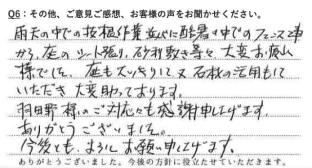 Q6：その他、ご意見ご感想、お客様の声をお聞かせください。
雨天の中での抜根作業並びに酷暑の中でのフェンス工事
から、庭のシート張り、砂利敷き等々、大変お疲れ
様でした。庭もスッキリして又石材の活用もして
いただき大変助っております。
羽田野様のご対応も感謝申し上げます。
ありがとうございました。
今後も、よろしくお願い申し上げます。
ありがとうございました。今後の方針に役立たせていただきます。